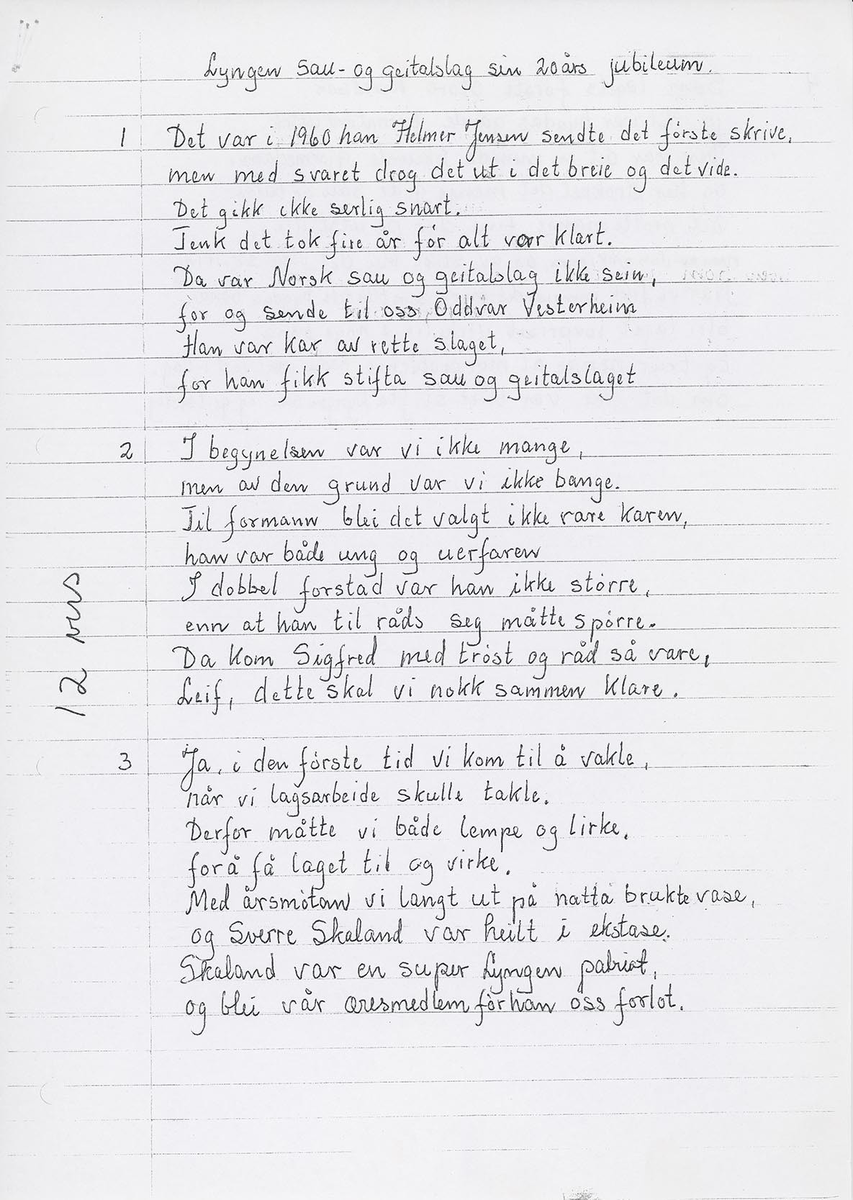 Lyngen sau- og geitalslag sin 20 års jubileum.
1 Det var i 1960 han Helmer Jensen sendte det förste skrive,
men med svaret drog det ut i det breie og det vide.
Det gikk ikke serlig snart.
Tenk det tok fire år för alt var klart.
Da var Norsk sau og geitalslag ikke sein,
for og sende til oss Oddvar Vesterheim
Han var kar av rette slaget,
for han fikk stifta sau og geitalslaget
2 I begynelsen var vi ikke mange,
men av den grund var vi ikke bange.
Til formann blei det valgt ikke rare karen,
han var både ung og uerfaren
I dobbel forstad var han ikke större,
enn at han til råds seg måtte spörre.
Da kom Sigfred med tröst og råd så vare,
Leif, dette skal vi nokk sammen klare.
12 vers
3 Ja, i den förste tid vi kom til å vakle,
når vi lagsarbeide skulle takle.
Derfor måtte vi både lempe og lirke,
forå få laget til og virke.
Med årsmötan vi langt ut på natta brukte vase,
og Sverre Skaland var heilt i ekstase.
Skaland var en super Lyngen patriot,
og blei vår æresmedlem för han oss forlot.